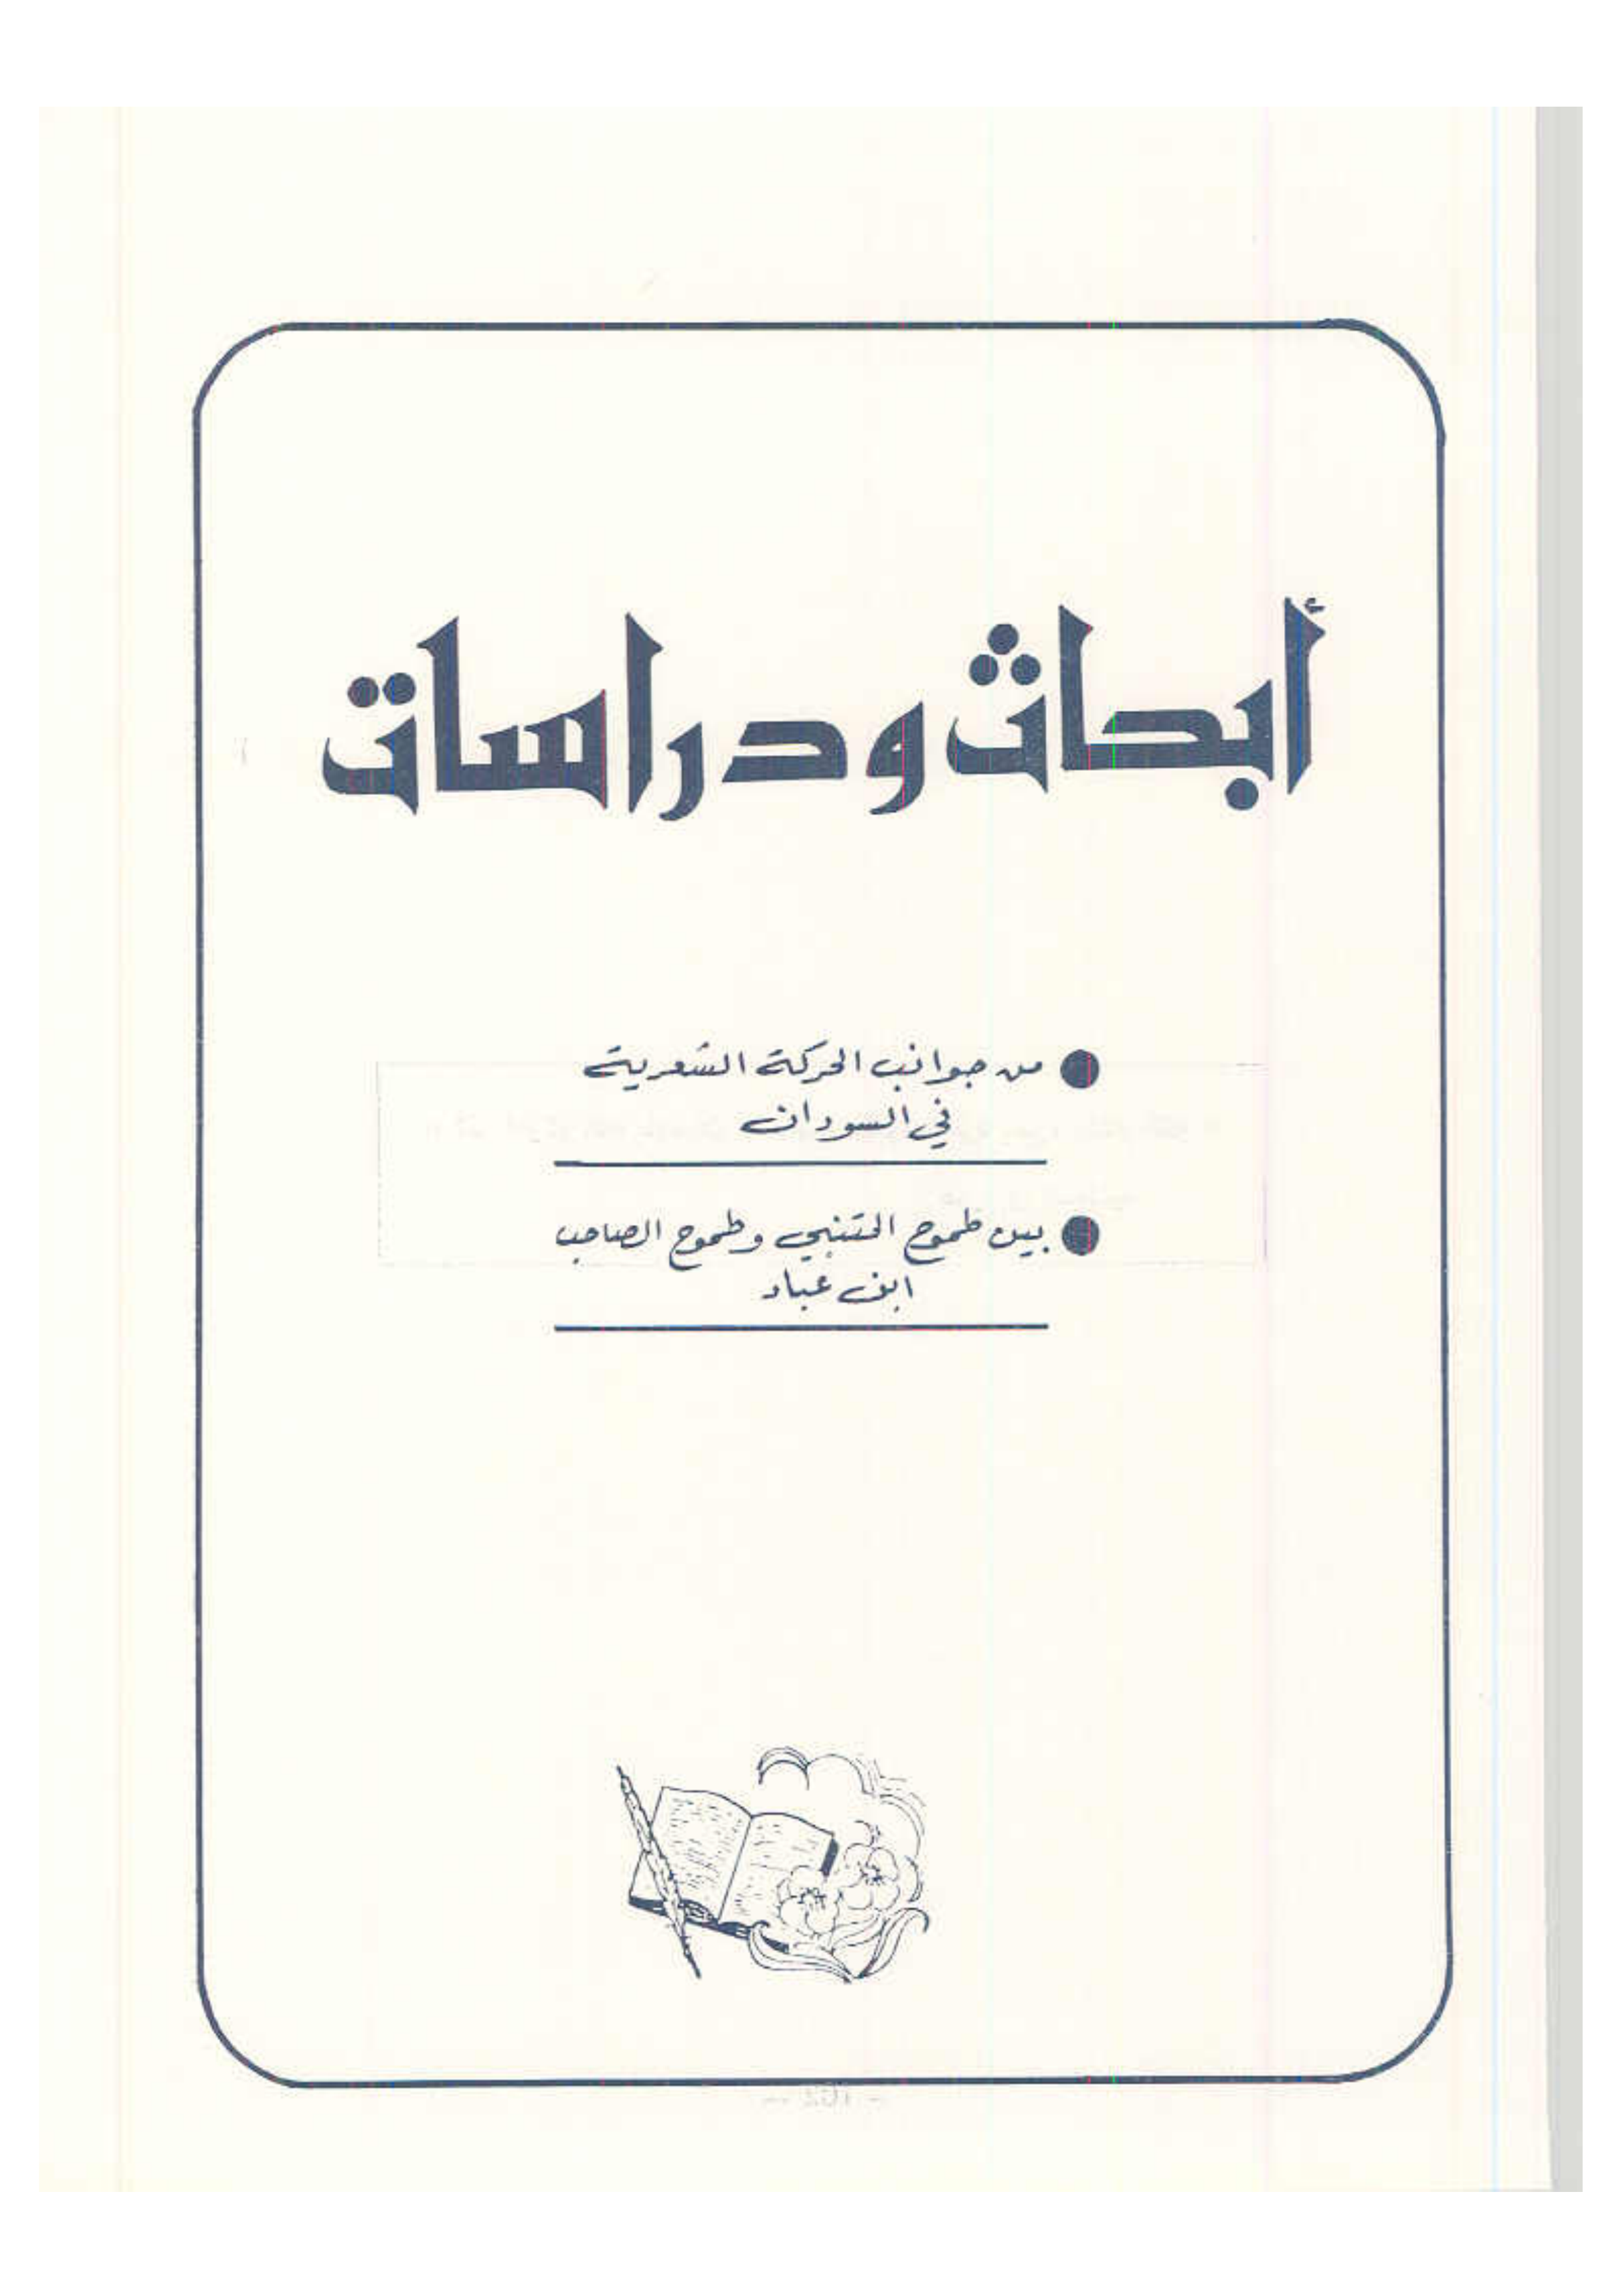 أبحاث ودراسات
● من جوانب الحركة الشعرية
في السودان
● بين طموح المتنبي وطموح الصاحب
ابن عباد